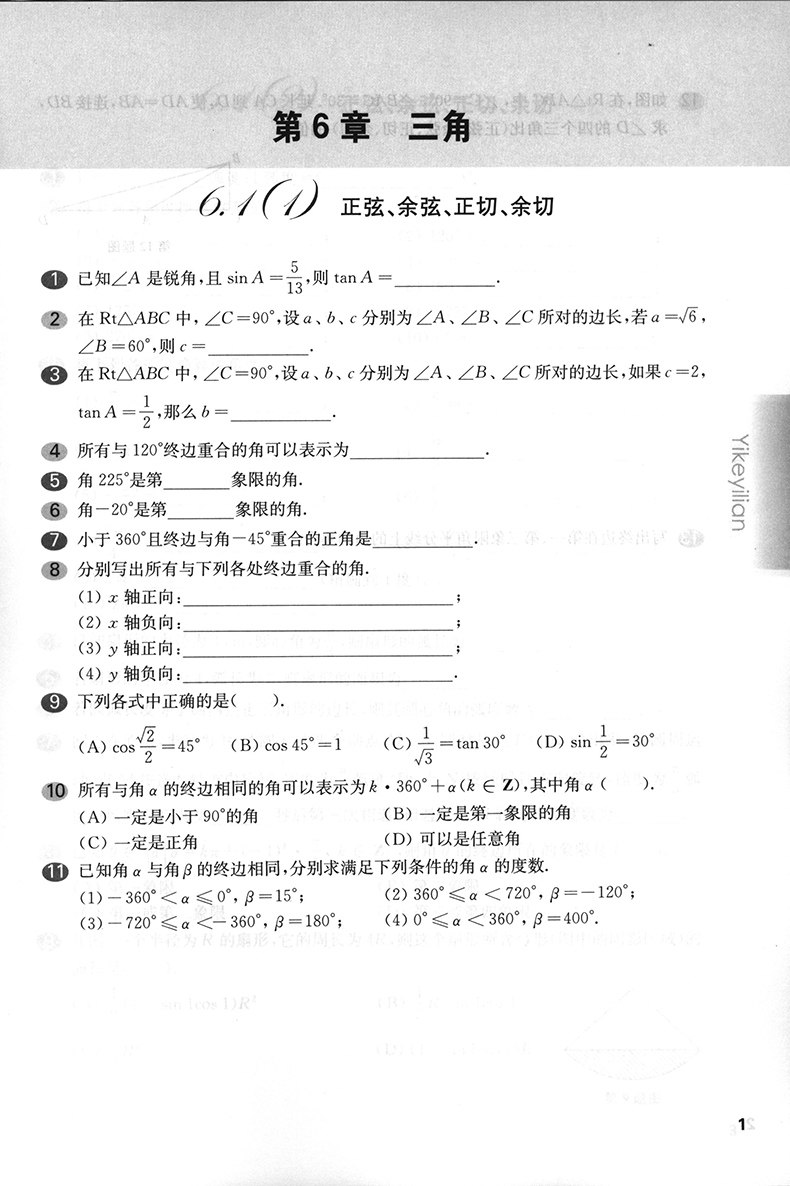 第6章 三角
6.1(1) 正弦、余弦、正切、余切
1 已知∠A 是锐角,且 sin A = 5/13,则 tan A = ____________.
2 在 Rt△ABC 中, ∠C=90°,设 a、b、c 分别为 ∠A、∠B、∠C 所对的边长,若 a=√6,
∠B=60°,则 c = ____________.
3 在 Rt△ABC 中, ∠C=90°,设 a、b、c 分别为 ∠A、∠B、∠C 所对的边长,如果 c=2,
tan A = 1/2,那么 b = ____________.
4 所有与 120°终边重合的角可以表示为________________.
5 角 225°是第________象限的角.
6 角-20°是第________象限的角.
7 小于 360°且终边与角-45°重合的正角是____________.
8 分别写出所有与下列各处终边重合的角.
(1) x 轴正向:________________________________;
(2) x 轴负向:________________________________;
(3) y 轴正向:________________________________;
(4) y 轴负向:________________________________.
9 下列各式中正确的是(  ).
(A) cos √2/2 =45° (B) cos 45°=1 (C) 1/√3 =tan 30° (D) sin 1/2 =30°
10 所有与角 α 的终边相同的角可以表示为 k·360°+α(k∈Z),其中角 α (  ).
(A) 一定是小于 90°的角 (B) 一定是第一象限的角
(C) 一定是正角 (D) 可以是任意角
11 已知角 α 与角 β 的终边相同,分别求满足下列条件的角 α 的度数.
(1) -360°<α≤0°, β=15°; (2) 360°≤α<720°, β=-120°;
(3) -720°≤α<-360°, β=180°; (4) 0°≤α<360°, β=400°.
Yikeyilian
1